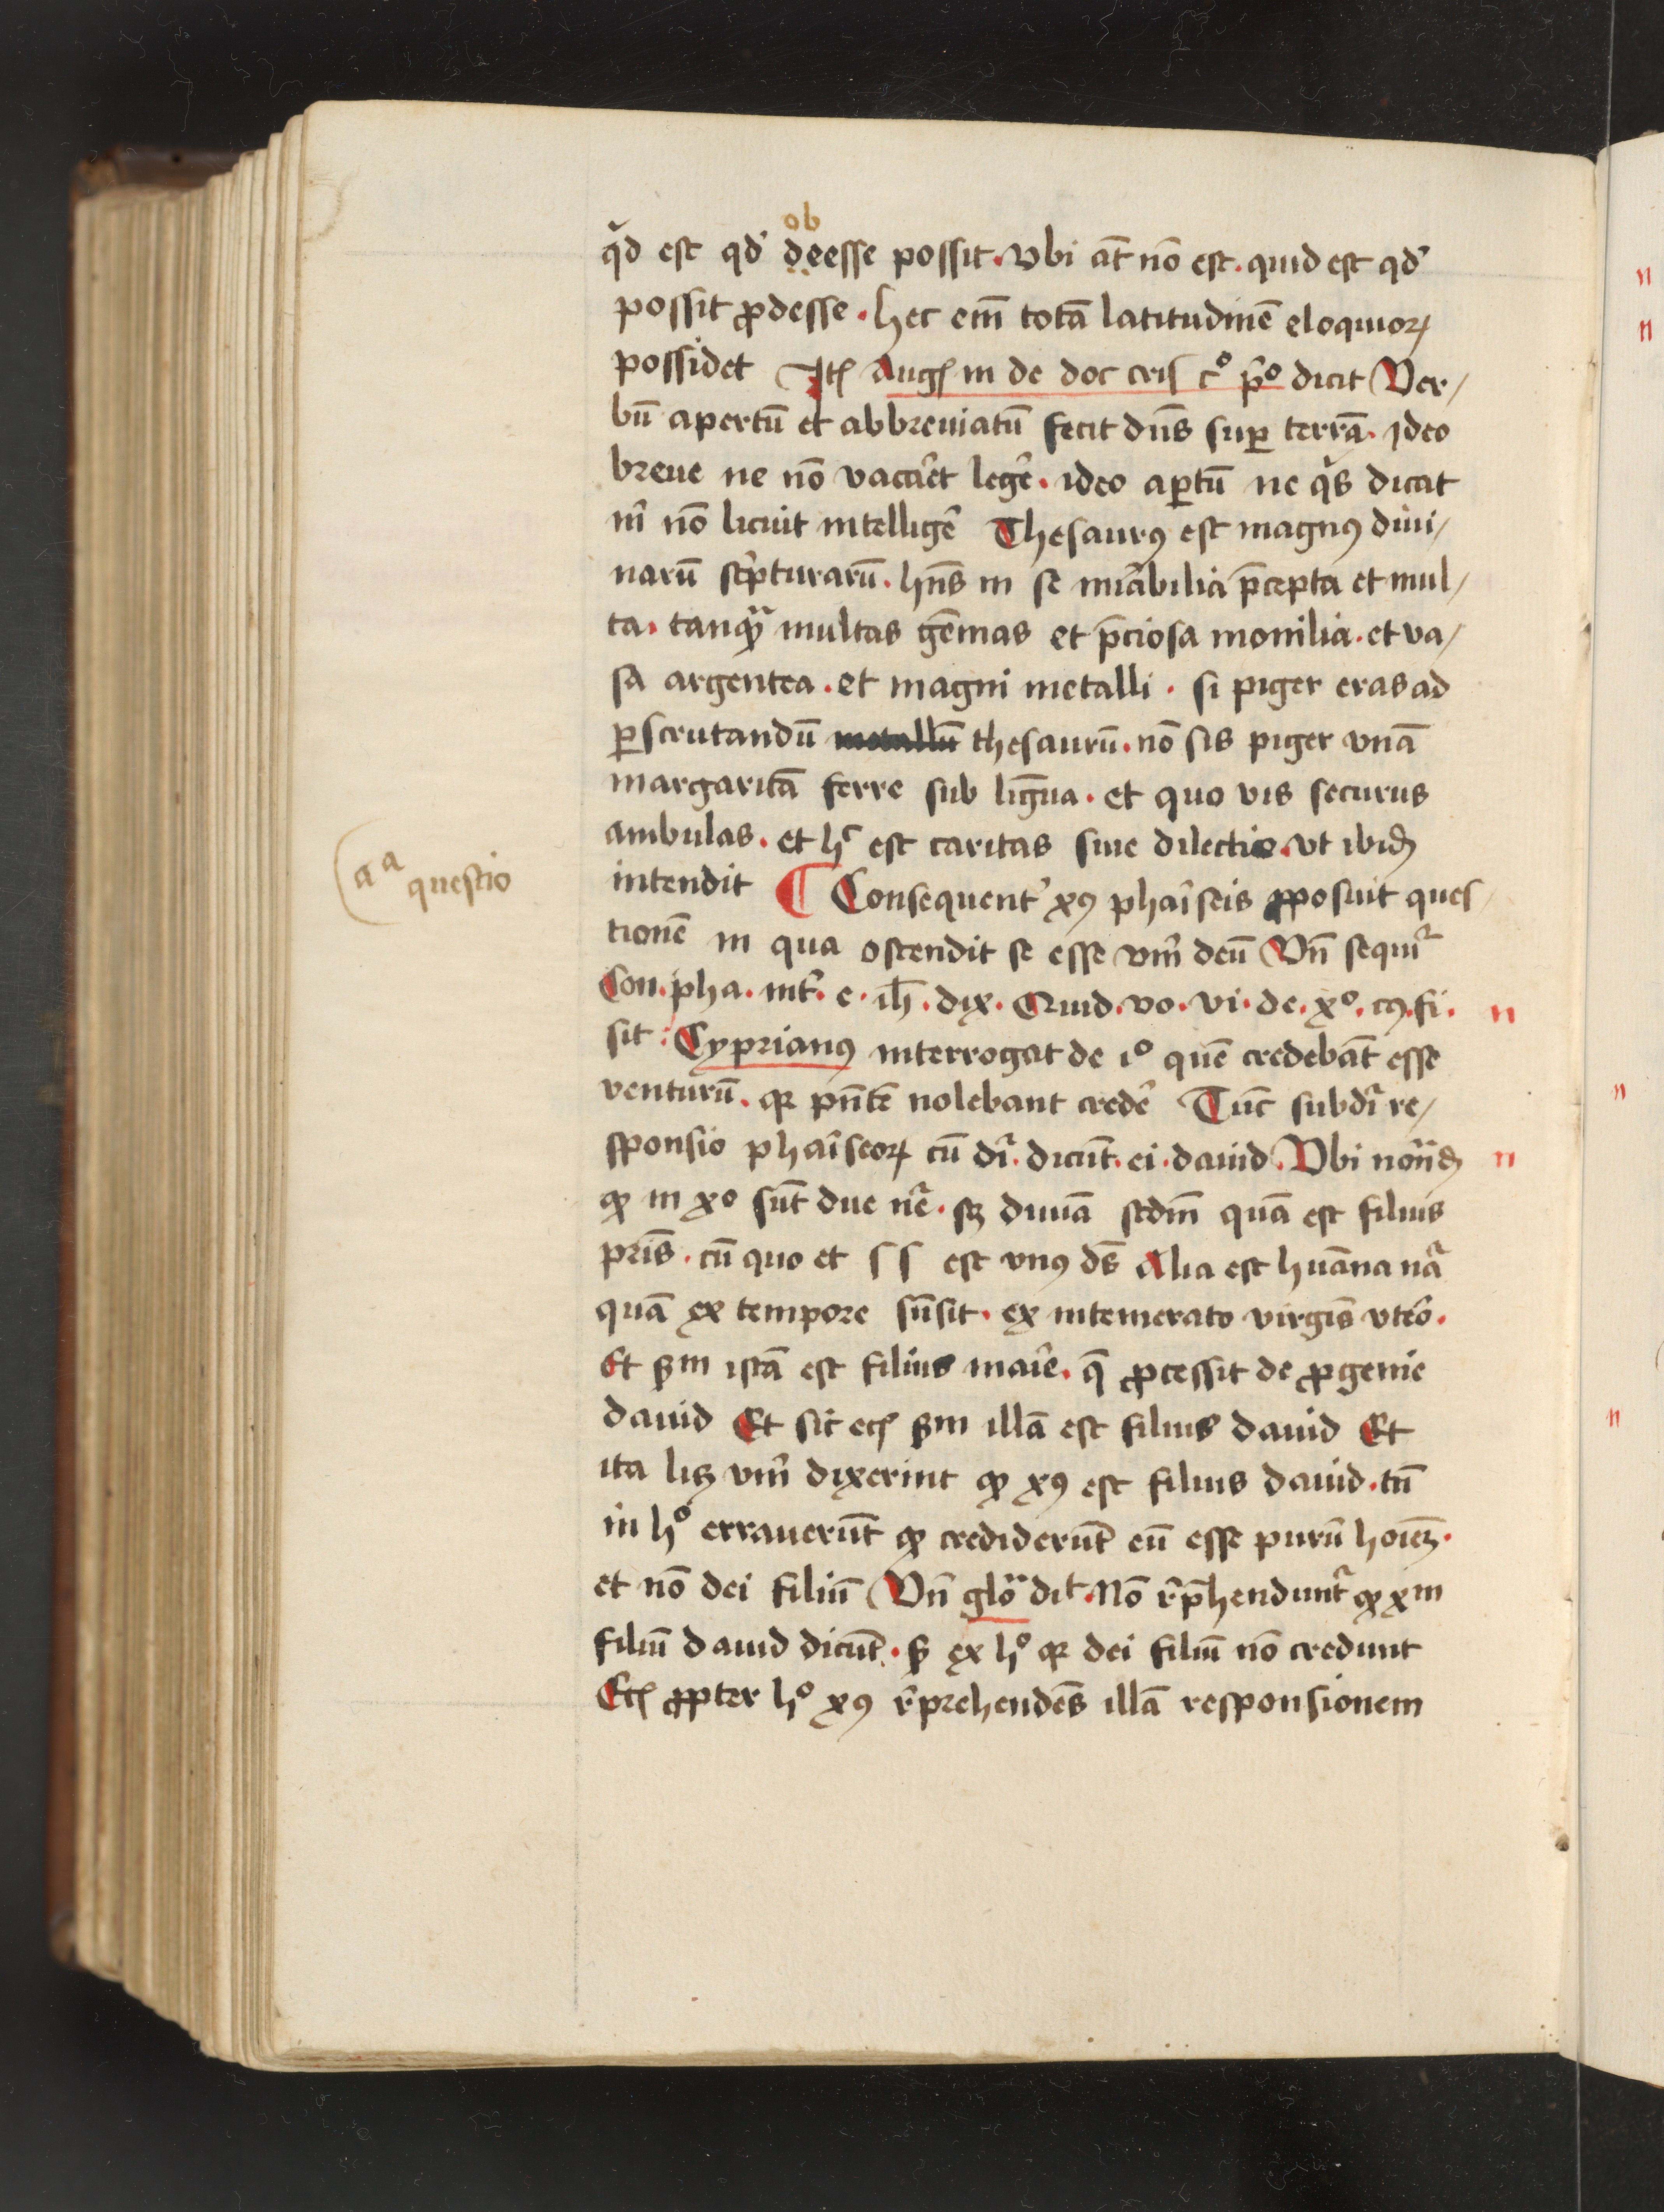 ob
qd est qd̕ deesse possit. vbi at̄ nō est. quid est qd̕
possit ꝓdesse. hec em̄ totā latitudinē eloquioꝝ
possidet Itē Augꝰ in de doc cris cº pº dicit Ver/
bū apertū et abbreuiatū fecit dn̄s suꝑ terrā. ideo
breue ne nō vacaret leger̄. ideo aꝑtū ne qͥs dicat
m̄ nō licuit intelliger̄ Thesaurꝰ est magnꝰ diui/
narū scͥpturarū. hn̄s in se mirabilia p̄cepta et mul/
ta. tanqͣ multas gēmas et p̄ciosa monilia. et va/
sa argentea. et magni metalli. si piger eras ad
ꝑscrutandū metallū thesaurū. nō sis piger vnā
margaritā ferre sub lingua. et quo vis securus
ambulas. et hᶜ est caritas siue dilectio. vt ibidē
intendit ¶ Consequent̕ xꝰ phaͥseis ꝓposuit ques/
aª questio
tionē in qua ostendit se esse vm̄ deū Vn̄ sequiᷣ
Con. pha. int̕. e. ih̄. dix. Quid. vo. vi. de. xº. cꝰ. fi. n
sit: Cyprianꝰ interrogat de iº quē credebāt esse
venturū. qꝛ pn̄tē nolebant creder̄ Tūc subdiᷣ re/
sponsio phaͥseoꝝ cū dr̄. dicūt. ei. dauid. Vbi nōndū n
ꝙ in xº sūt due nͣe. sꝫ diuīa scdm̄ quā est filius
pris̄. cū quo et ſſ est vnꝰ ds̄ Alia est huāna nͣa
quā ex tempore sūsit. ex intemerato virgīs vtero.
Et ẜm istā est filius marie. q̄ ꝓcessit de ꝓgenie
dauid Et sic eciā ẜm illā est filius dauid Et
ita licꝫ vm̄ dixerint ꝙ xꝰ est filius dauid. tn̄
in hº errauerūt ꝙ crediderūt eū esse purū hoīeꝫ.
et nō dei filiū Vn̄ gloͣ diᵗ. Nō rep̄hendunᷣt ꝙ xm
filiū dauid dicūt. ẜ ex hº qꝛ dei filiū nō credunt
Eciā ꝓpter hº xꝰ reprehendēs illā responsionem